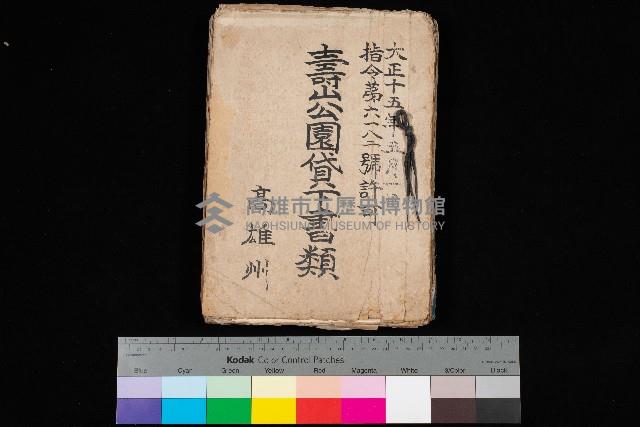 大正十五年五月
指令第六一八二號許可
壽山公園貸下書類
高雄州
高雄市立歷史博物館
KAOHSIUNG MUSEUM OF HISTORY
Kodak Color Control Patches
Blue Cyan Green Yellow Red Magenta White 3/Color Black